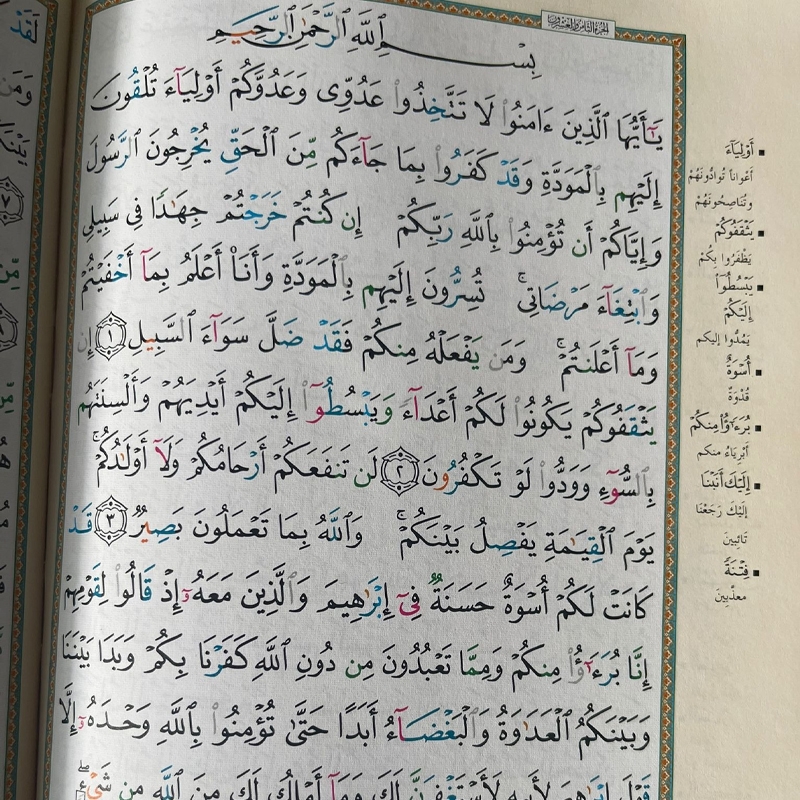 الجزء الثامن والعشرون
بِسْمِ ٱللَّهِ ٱلرَّحْمَٰنِ ٱلرَّحِيمِ
يَٰٓأَيُّهَا ٱلَّذِينَ ءَامَنُوا۟ لَا تَتَّخِذُوا۟ عَدُوِّى وَعَدُوَّكُمْ أَوْلِيَآءَ تُلْقُونَ
إِلَيْهِم بِٱلْمَوَدَّةِ وَقَدْ كَفَرُوا۟ بِمَا جَآءَكُم مِّنَ ٱلْحَقِّ يُخْرِجُونَ ٱلرَّسُولَ
وَإِيَّاكُمْ أَن تُؤْمِنُوا۟ بِٱللَّهِ رَبِّكُمْ إِن كُنتُمْ خَرَجْتُمْ جِهَٰدًا فِى سَبِيلِى
وَٱبْتِغَآءَ مَرْضَاتِى ۚ تُسِرُّونَ إِلَيْهِم بِٱلْمَوَدَّةِ وَأَنَا۠ أَعْلَمُ بِمَآ أَخْفَيْتُمْ
وَمَآ أَعْلَنتُمْ ۚ وَمَن يَفْعَلْهُ مِنكُمْ فَقَدْ ضَلَّ سَوَآءَ ٱلسَّبِيلِ ١ إِن
يَثْقَفُوكُمْ يَكُونُوا۟ لَكُمْ أَعْدَآءً وَيَبْسُطُوٓا۟ إِلَيْكُمْ أَيْدِيَهُمْ وَأَلْسِنَتَهُم
بِٱلسُّوٓءِ وَوَدُّوا۟ لَوْ تَكْفُرُونَ ٢ لَن تَنفَعَكُمْ أَرْحَامُكُمْ وَلَآ أَوْلَٰدُكُمْ ۚ
يَوْمَ ٱلْقِيَٰمَةِ يَفْصِلُ بَيْنَكُمْ ۚ وَٱللَّهُ بِمَا تَعْمَلُونَ بَصِيرٌ ٣ قَدْ
كَانَتْ لَكُمْ أُسْوَةٌ حَسَنَةٌ فِىٓ إِبْرَٰهِيمَ وَٱلَّذِينَ مَعَهُۥٓ إِذْ قَالُوا۟ لِقَوْمِهِمْ
إِنَّا بُرَءَٰٓؤُا۟ مِنكُمْ وَمِمَّا تَعْبُدُونَ مِن دُونِ ٱللَّهِ كَفَرْنَا بِكُمْ وَبَدَا بَيْنَنَا
وَبَيْنَكُمُ ٱلْعَدَٰوَةُ وَٱلْبَغْضَآءُ أَبَدًا حَتَّىٰ تُؤْمِنُوا۟ بِٱللَّهِ وَحْدَهُۥٓ إِلَّا
قَوْلَ إِبْرَٰهِيمَ لِأَبِيهِ لَأَسْتَغْفِرَنَّ لَكَ وَمَآ أَمْلِكُ لَكَ مِنَ ٱللَّهِ مِن شَىْءٍ ۖ
▪ أَوْلِيَآءَ
أَعْوَاناً تُوَادُّونَهُمْ
وَتُنَاصِحُونَهُمْ
▪ يَثْقَفُوكُمْ
يَظْفَرُوا بِكُمْ
▪ يَبْسُطُوٓا۟
إِلَيْكُمْ
يَمُدُّوا إليكم
▪ أُسْوَةٌ
قُدْوَةٌ
▪ بُرَءَٰٓؤُا۟ مِنكُمْ
أَبْرِيَاءُ منكم
▪ إِلَيْكَ أَنَبْنَا
إِلَيْكَ رَجَعْنَا
تَائِبِينَ
▪ فِتْنَةً
معذَّبِينَ